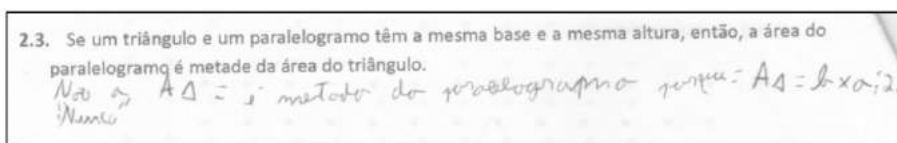 2.3. Se um triângulo e um paralelogramo têm a mesma base e a mesma altura, então, a área do
paralelogramo é metade da área do triângulo.
A Δ = metade do porque = AΔ = b x a : 2